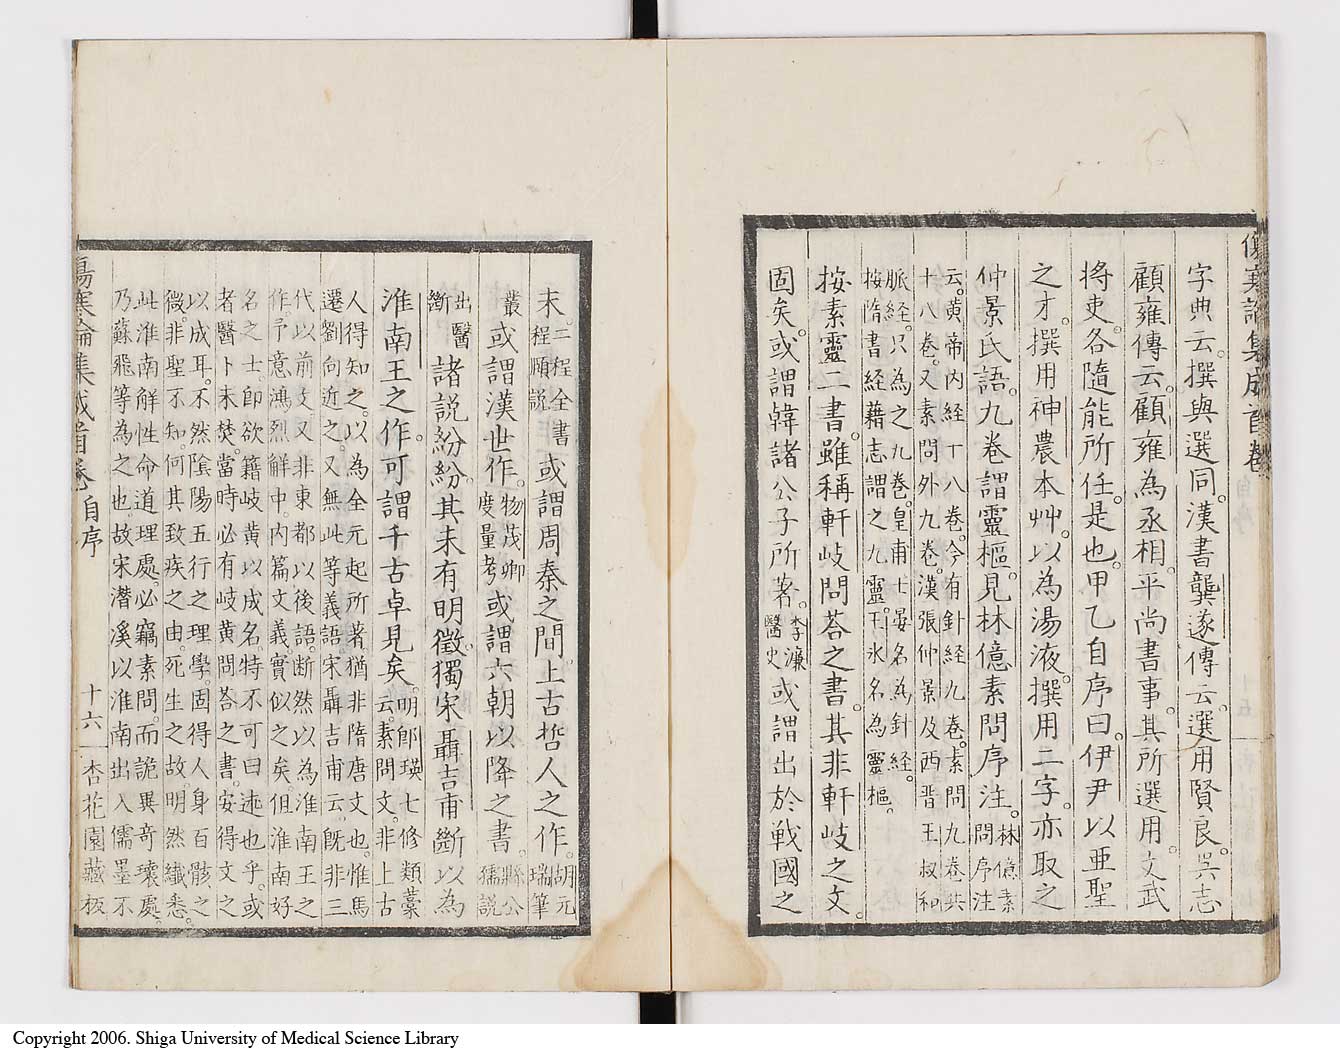 傷寒論集成首卷
字典云。撰與選同。漢書龔遂傳云。選用賢良。呉志
顧雍傳云。顧雍為丞相。平尚書事。其所選用。文武
將吏。各隨能所任。是也。甲乙自序曰。伊尹以亜聖
之才。撰用神農本艸。以為湯液。撰用二字。亦取之
仲景氏語。九卷謂靈樞。見林億素問序注。林億素
問序注
云。黄帝内經十八卷。今有針經九卷。素問九卷。共
十八卷。又素問外九卷。漢張仲景及西晋王叔和
脈經。只為之九卷。皇甫士晏名為針經。
按隋書經藉志謂之九靈。王氷名為靈樞。
按素靈二書。雖稱軒岐問荅之書。其非軒岐之文。
固矣。或謂韓諸公子所著。李濂
醫史或謂出於戰國之
末。二程全書
程順說或謂周秦之間。上古哲人之作。胡元
瑞筆
叢或謂漢世作。物茂卿
度量考或謂六朝以降之書。縣公
孺說
出醫
斷諸説紛紛。其未有明徵。獨宋聶吉甫斷以為
淮南王之作。可謂千古卓見矣。明郎瑛七修類藁
云。素問文。非上古
人得知之。以為全元起所著。猶非隋唐文也。惟馬
遷劉向近之。又無此等義語。宋聶吉甫云。既非三
代以前文。又非東都以後語。断然以為淮南王之
作。予意鴻烈解中。内篇文義實似之矣。伹淮南好
名之士。即欲籍岐黄以成名。特不可曰述也乎。或
者醫卜未焚。當時必有岐黄問荅之書。安得文之
以成耳。不然陰陽五行之理學。固得人身百骸之
微。非聖不知。何其致疾之由。死生之故。明然纎悉。
此淮南解性命道理處。必竊素問。而詭異竒瓌處。
乃蘇飛等為之也。故宋潜溪以淮南出入儒墨不
傷寒論集成首卷 自序 十六 杏花園藏板
Copyright 2006. Shiga University of Medical Science Library